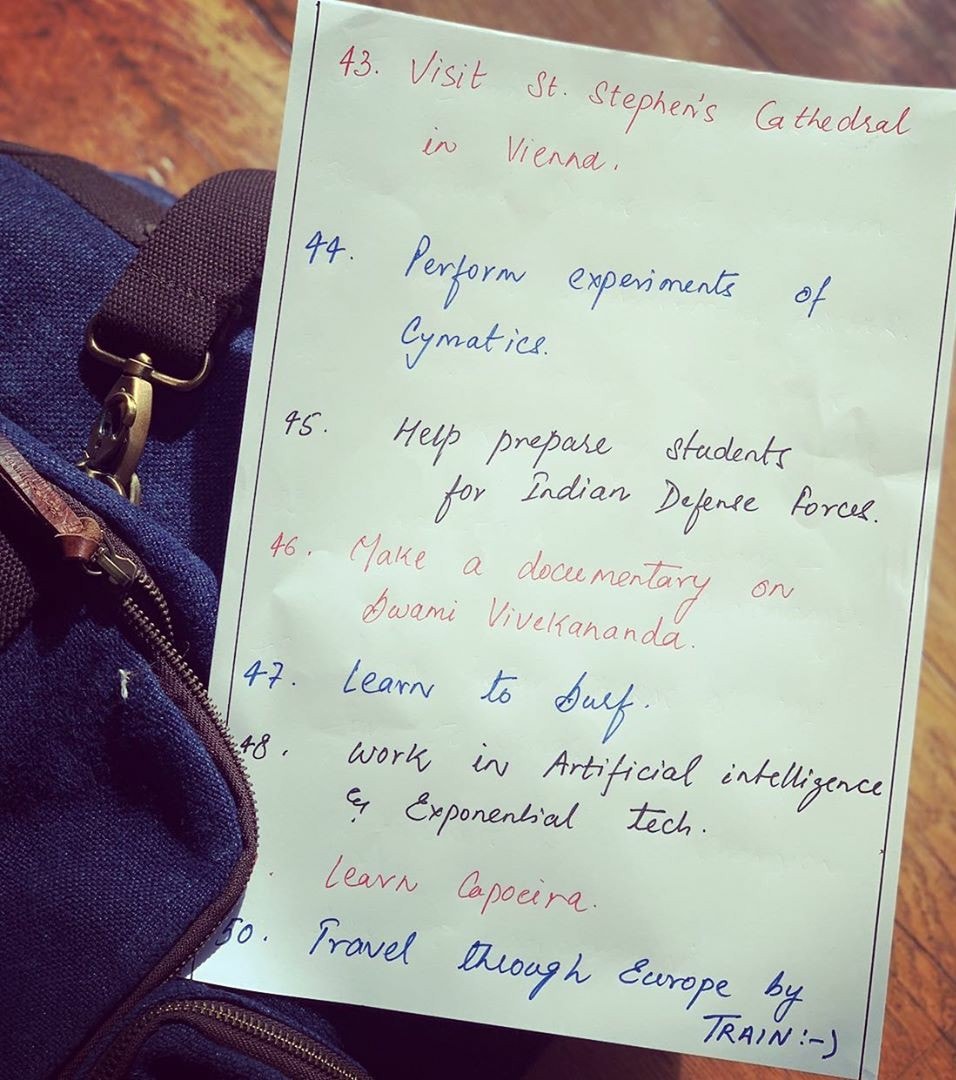 43. Visit St. Stephen's Cathedral
in Vienna.
44. Perform experiments of
Cymatics.
45. Help prepare students
for Indian Defense Forces.
46. Make a documentary on
Swami Vivekananda.
47. Learn to Surf.
48. Work in Artificial intelligence
& Exponential tech.
. Learn Capoeira.
50. Travel through Europe by
TRAIN :-)